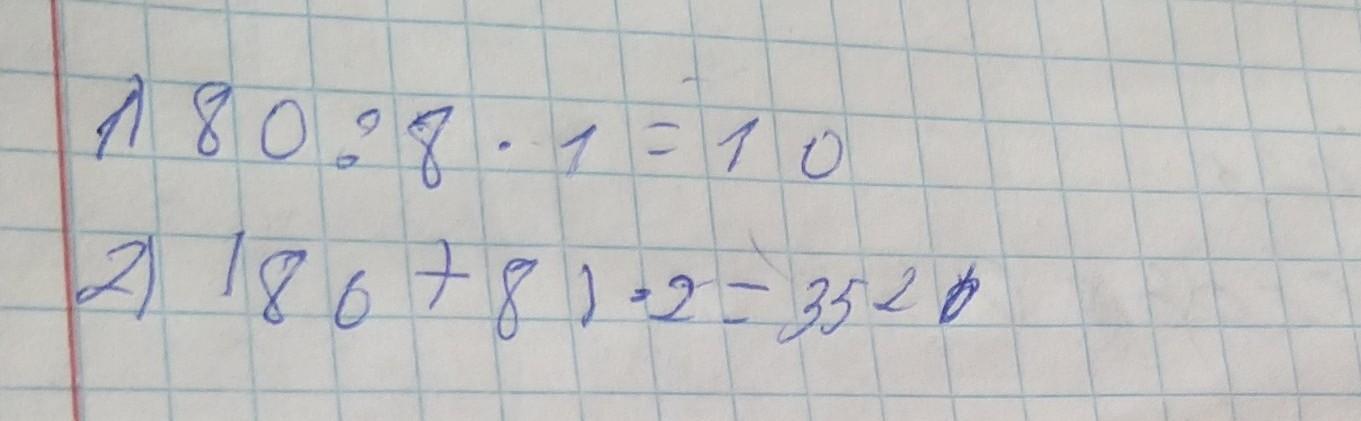 1) 80 : 8 · 1 = 10
2) (80 + 8) · 2 = 352